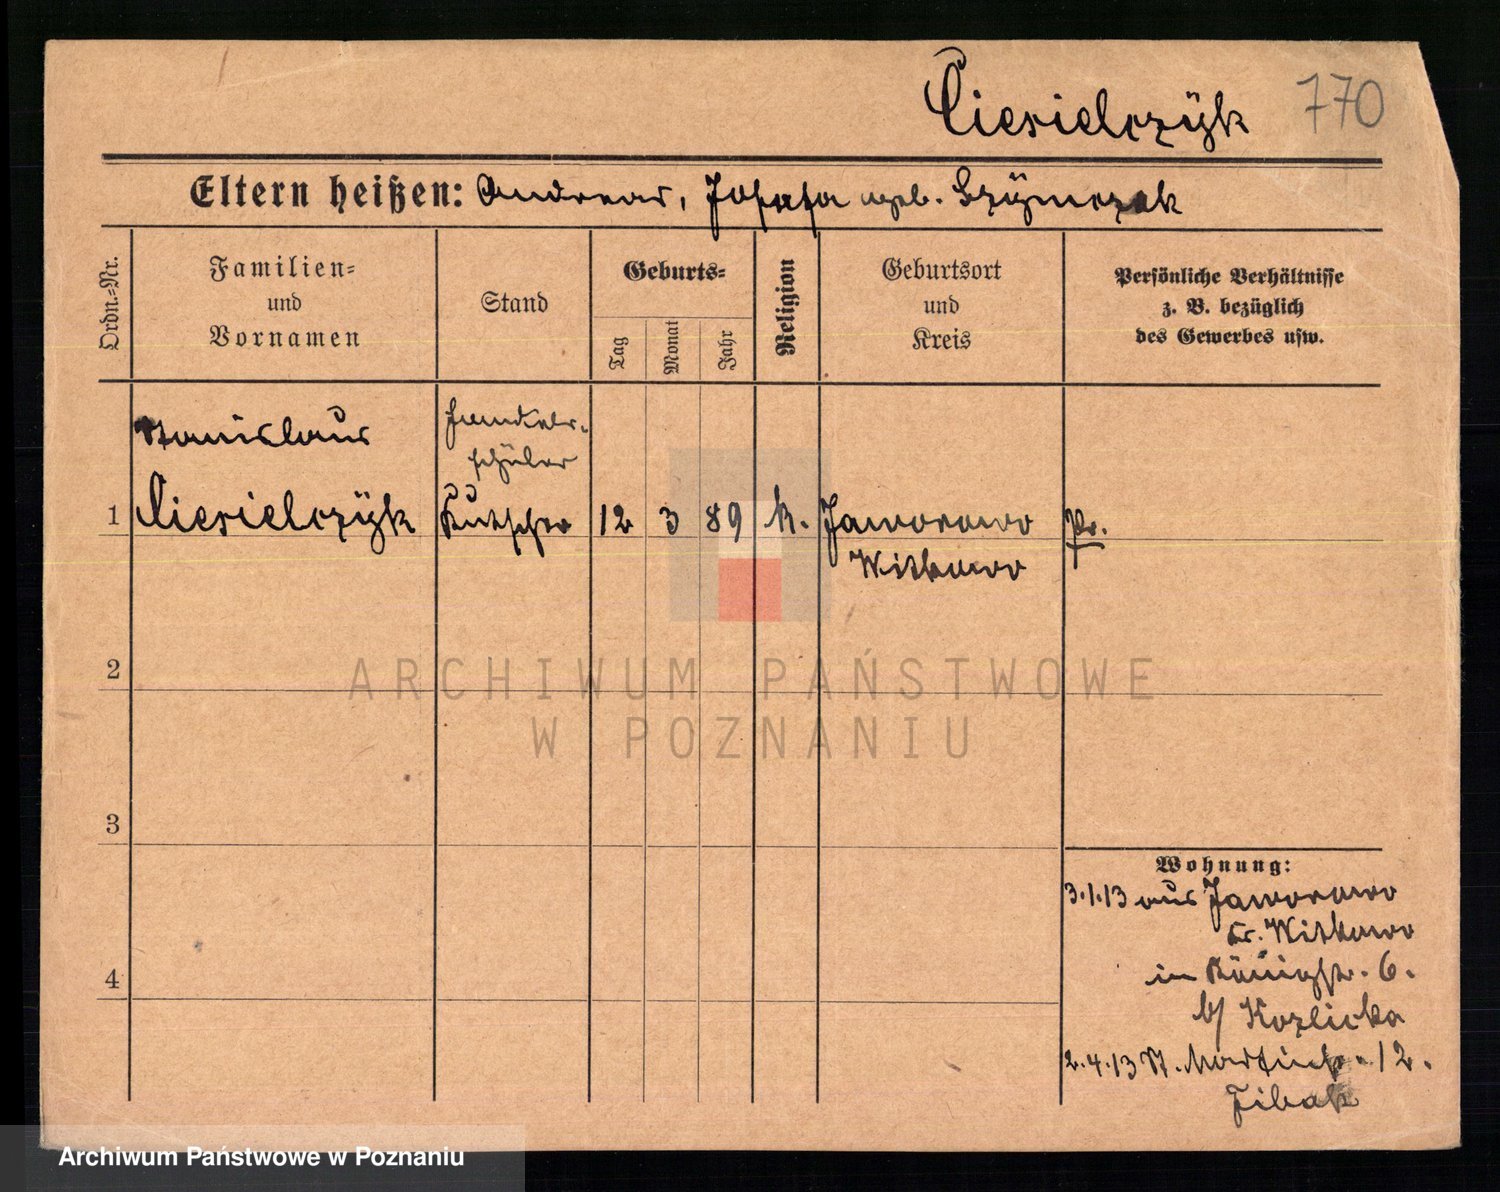 Ciesielczÿk 770
Eltern heißen: Andreas, Josefa geb. Szÿmczak
Ordn.=Nr.
Familien=
und
Vornamen
Stand
Geburts=
Tag
Monat
Jahr
Religion
Geburtsort
und
Kreis
Persönliche Verhältnisse
z. B. bezüglich
des Gewerbes usw.
Stanislaus
schüler
1 Ciesielczÿk Kutscher 12 3 89 k. Jaworowo Pr.
Witkowo
2
ARCHIWUM PAŃSTWOWE
W POZNANIU
3
Wohnung:
3.1.13 aus Jaworowo
Kr. Witkowo
in Königstr. 6.
b/ Kozlicka
4
2.4.13 St. Martinstr. 12.
Zibak
Archiwum Państwowe w Poznaniu